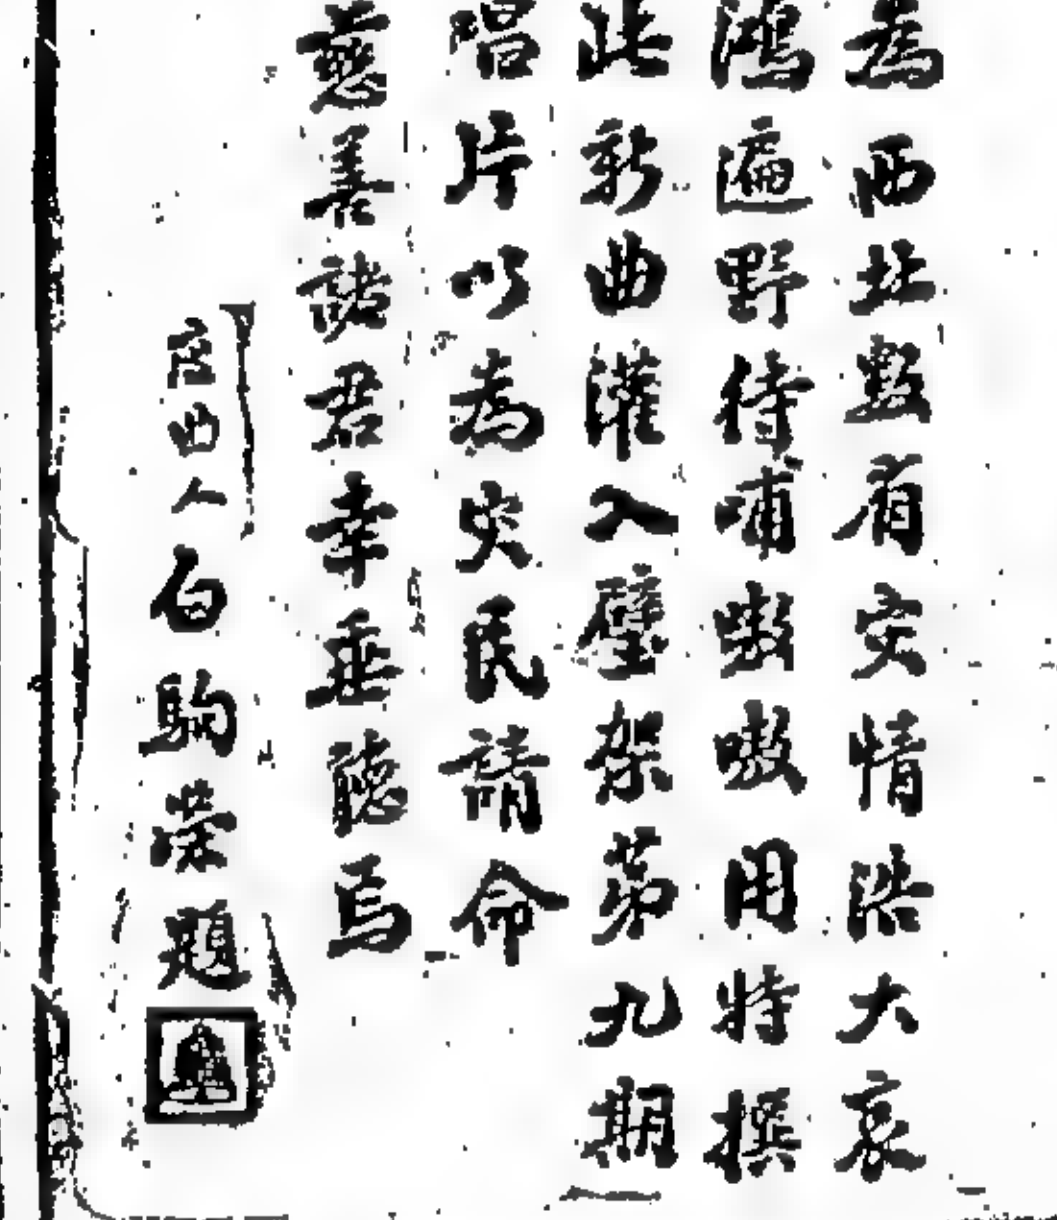 為西北數省灾情浩大哀
鴻遍野待哺嗷嗷用特撰
此新曲灌入璧架第九期
唱片以為灾民請命
慈善諸君幸垂聽焉
度曲人白駒榮題